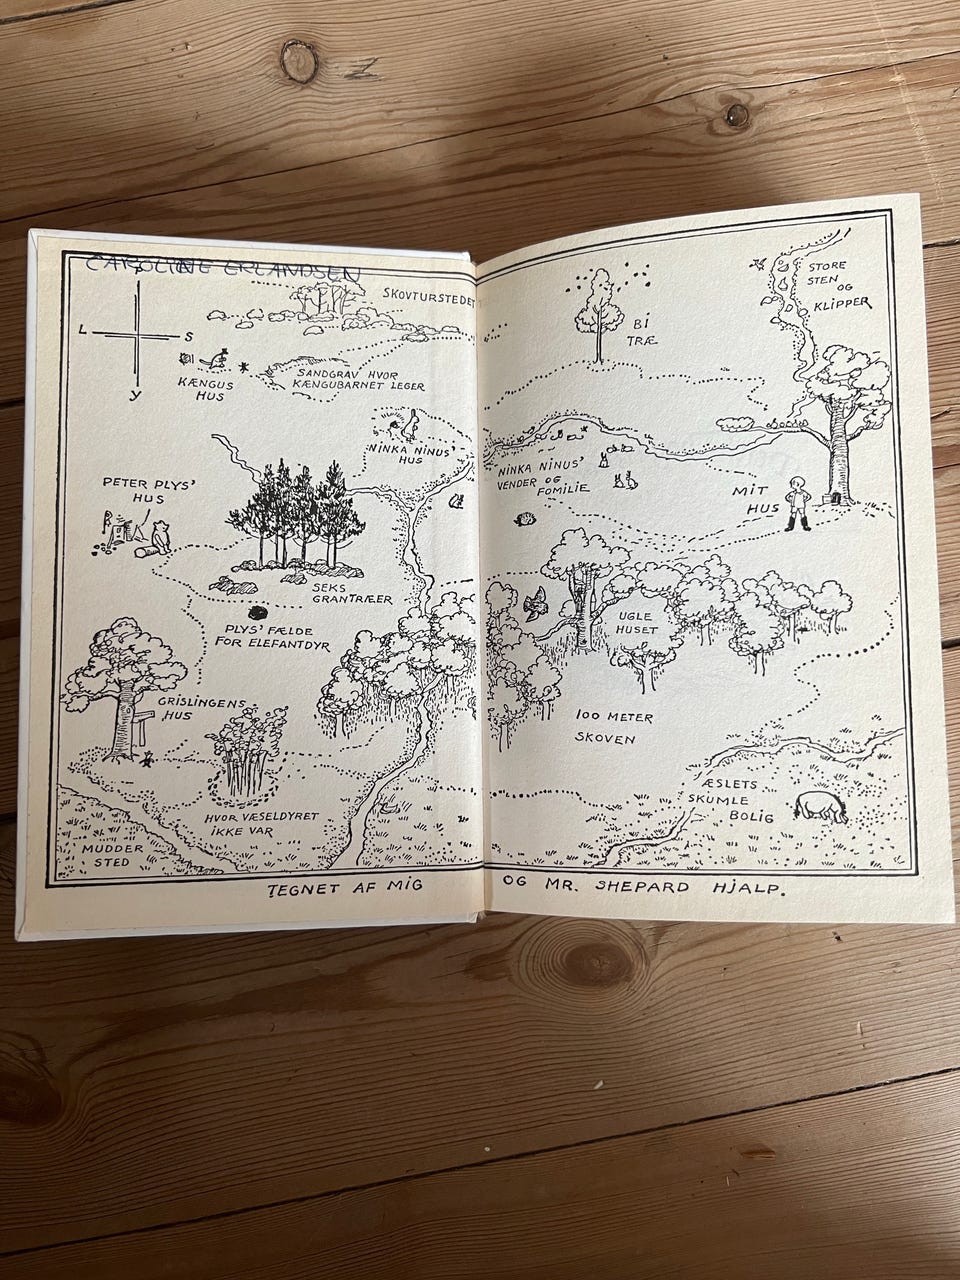 CAROLINE ERLANDSEN
SKOVTURSTEDET
L
S
Y
KÆNGUS
HUS
SANDGRAV HVOR
KÆNGUBARNET LEGER
NINKA NINUS'
HUS
PETER PLYS'
HUS
SEKS
GRANTRÆER
PLYS' FÆLDE
FOR ELEFANTDYR
GRISLINGENS
HUS
HVOR VÆSELDYRET
IKKE VAR
MUDDER
STED
TEGNET AF MIG
STORE
STEN
OG
KLIPPER
BI
TRÆ
NINKA NINUS'
VENDER OG
FOMILIE
MIT
HUS
UGLE
HUSET
100 METER
SKOVEN
ÆSLETS
SKUMLE
BOLIG
OG MR. SHEPARD HJALP.